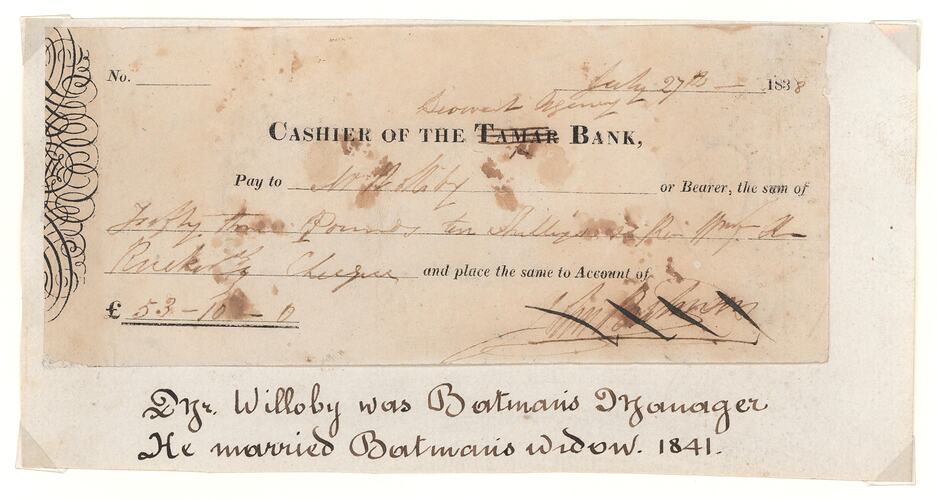 No. July 27th — 1838
Derwent Agency
CASHIER OF THE TAMAR BANK,
Pay to Mr Willoby or Bearer, the sum of
Fifty three Pounds ten Shillings
Cheque and place the same to Account of
£ 53 - 10 - 0
John Batman
Mr. Willoby was Batman's Manager
He married Batman's widow. 1841.